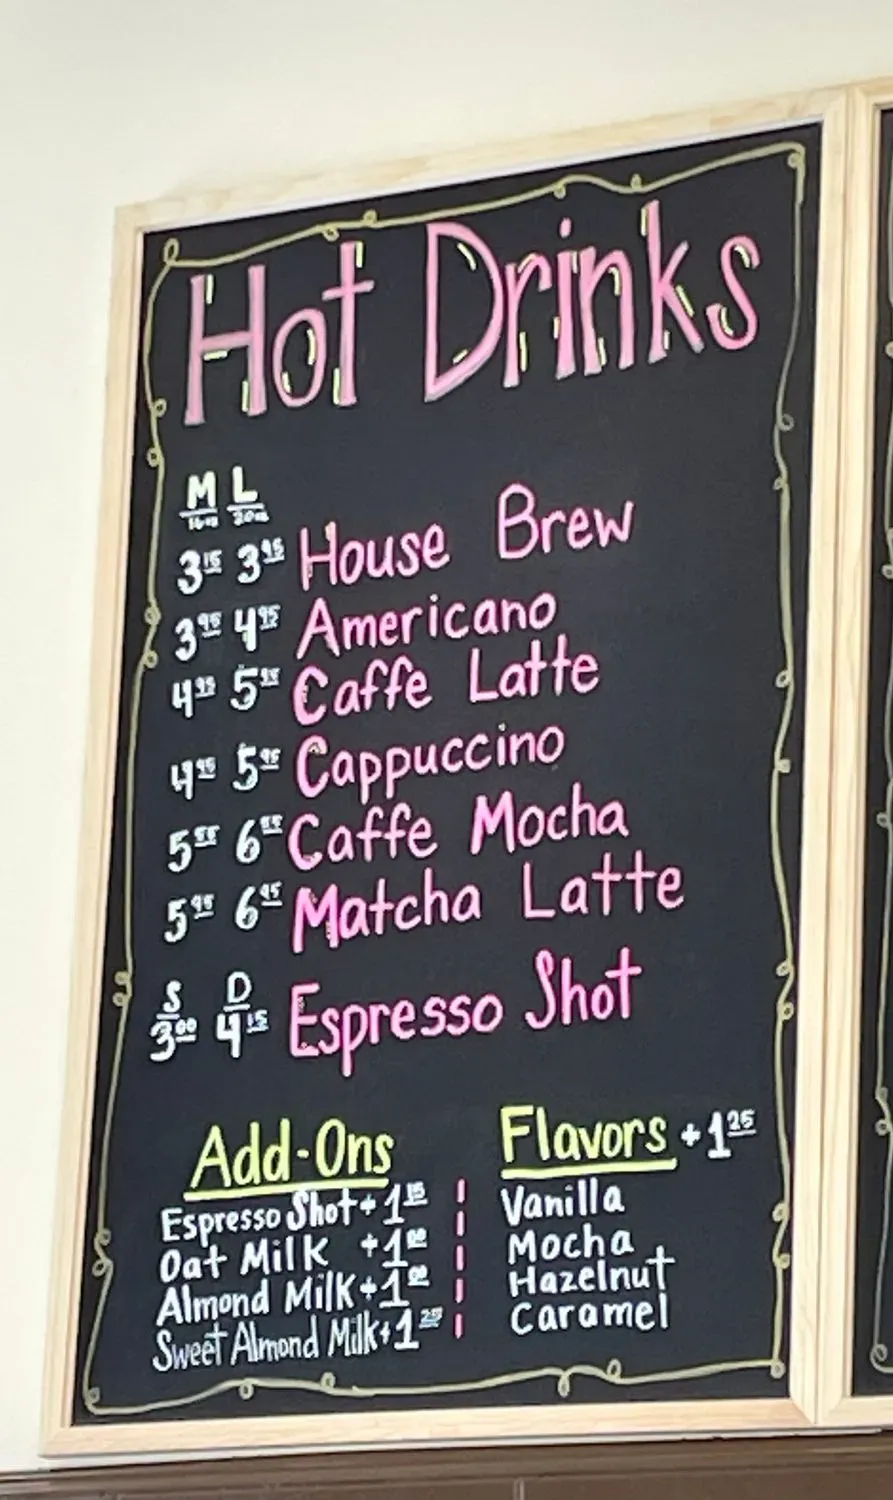 Hot Drinks
M L
16oz 20oz
3.15 3.95 House Brew
3.95 4.95 Americano
Caffe Latte
4.95 5.95 Cappuccino
Caffe Mocha
5.95 6.95 Matcha Latte
S D
3.00 4.15 Espresso Shot
Add-Ons
Espresso Shot +
Oat Milk +1.00
Almond Milk +1.00
Sweet Almond Milk +
Flavors +1.25
Vanilla
Mocha
Hazelnut
Caramel